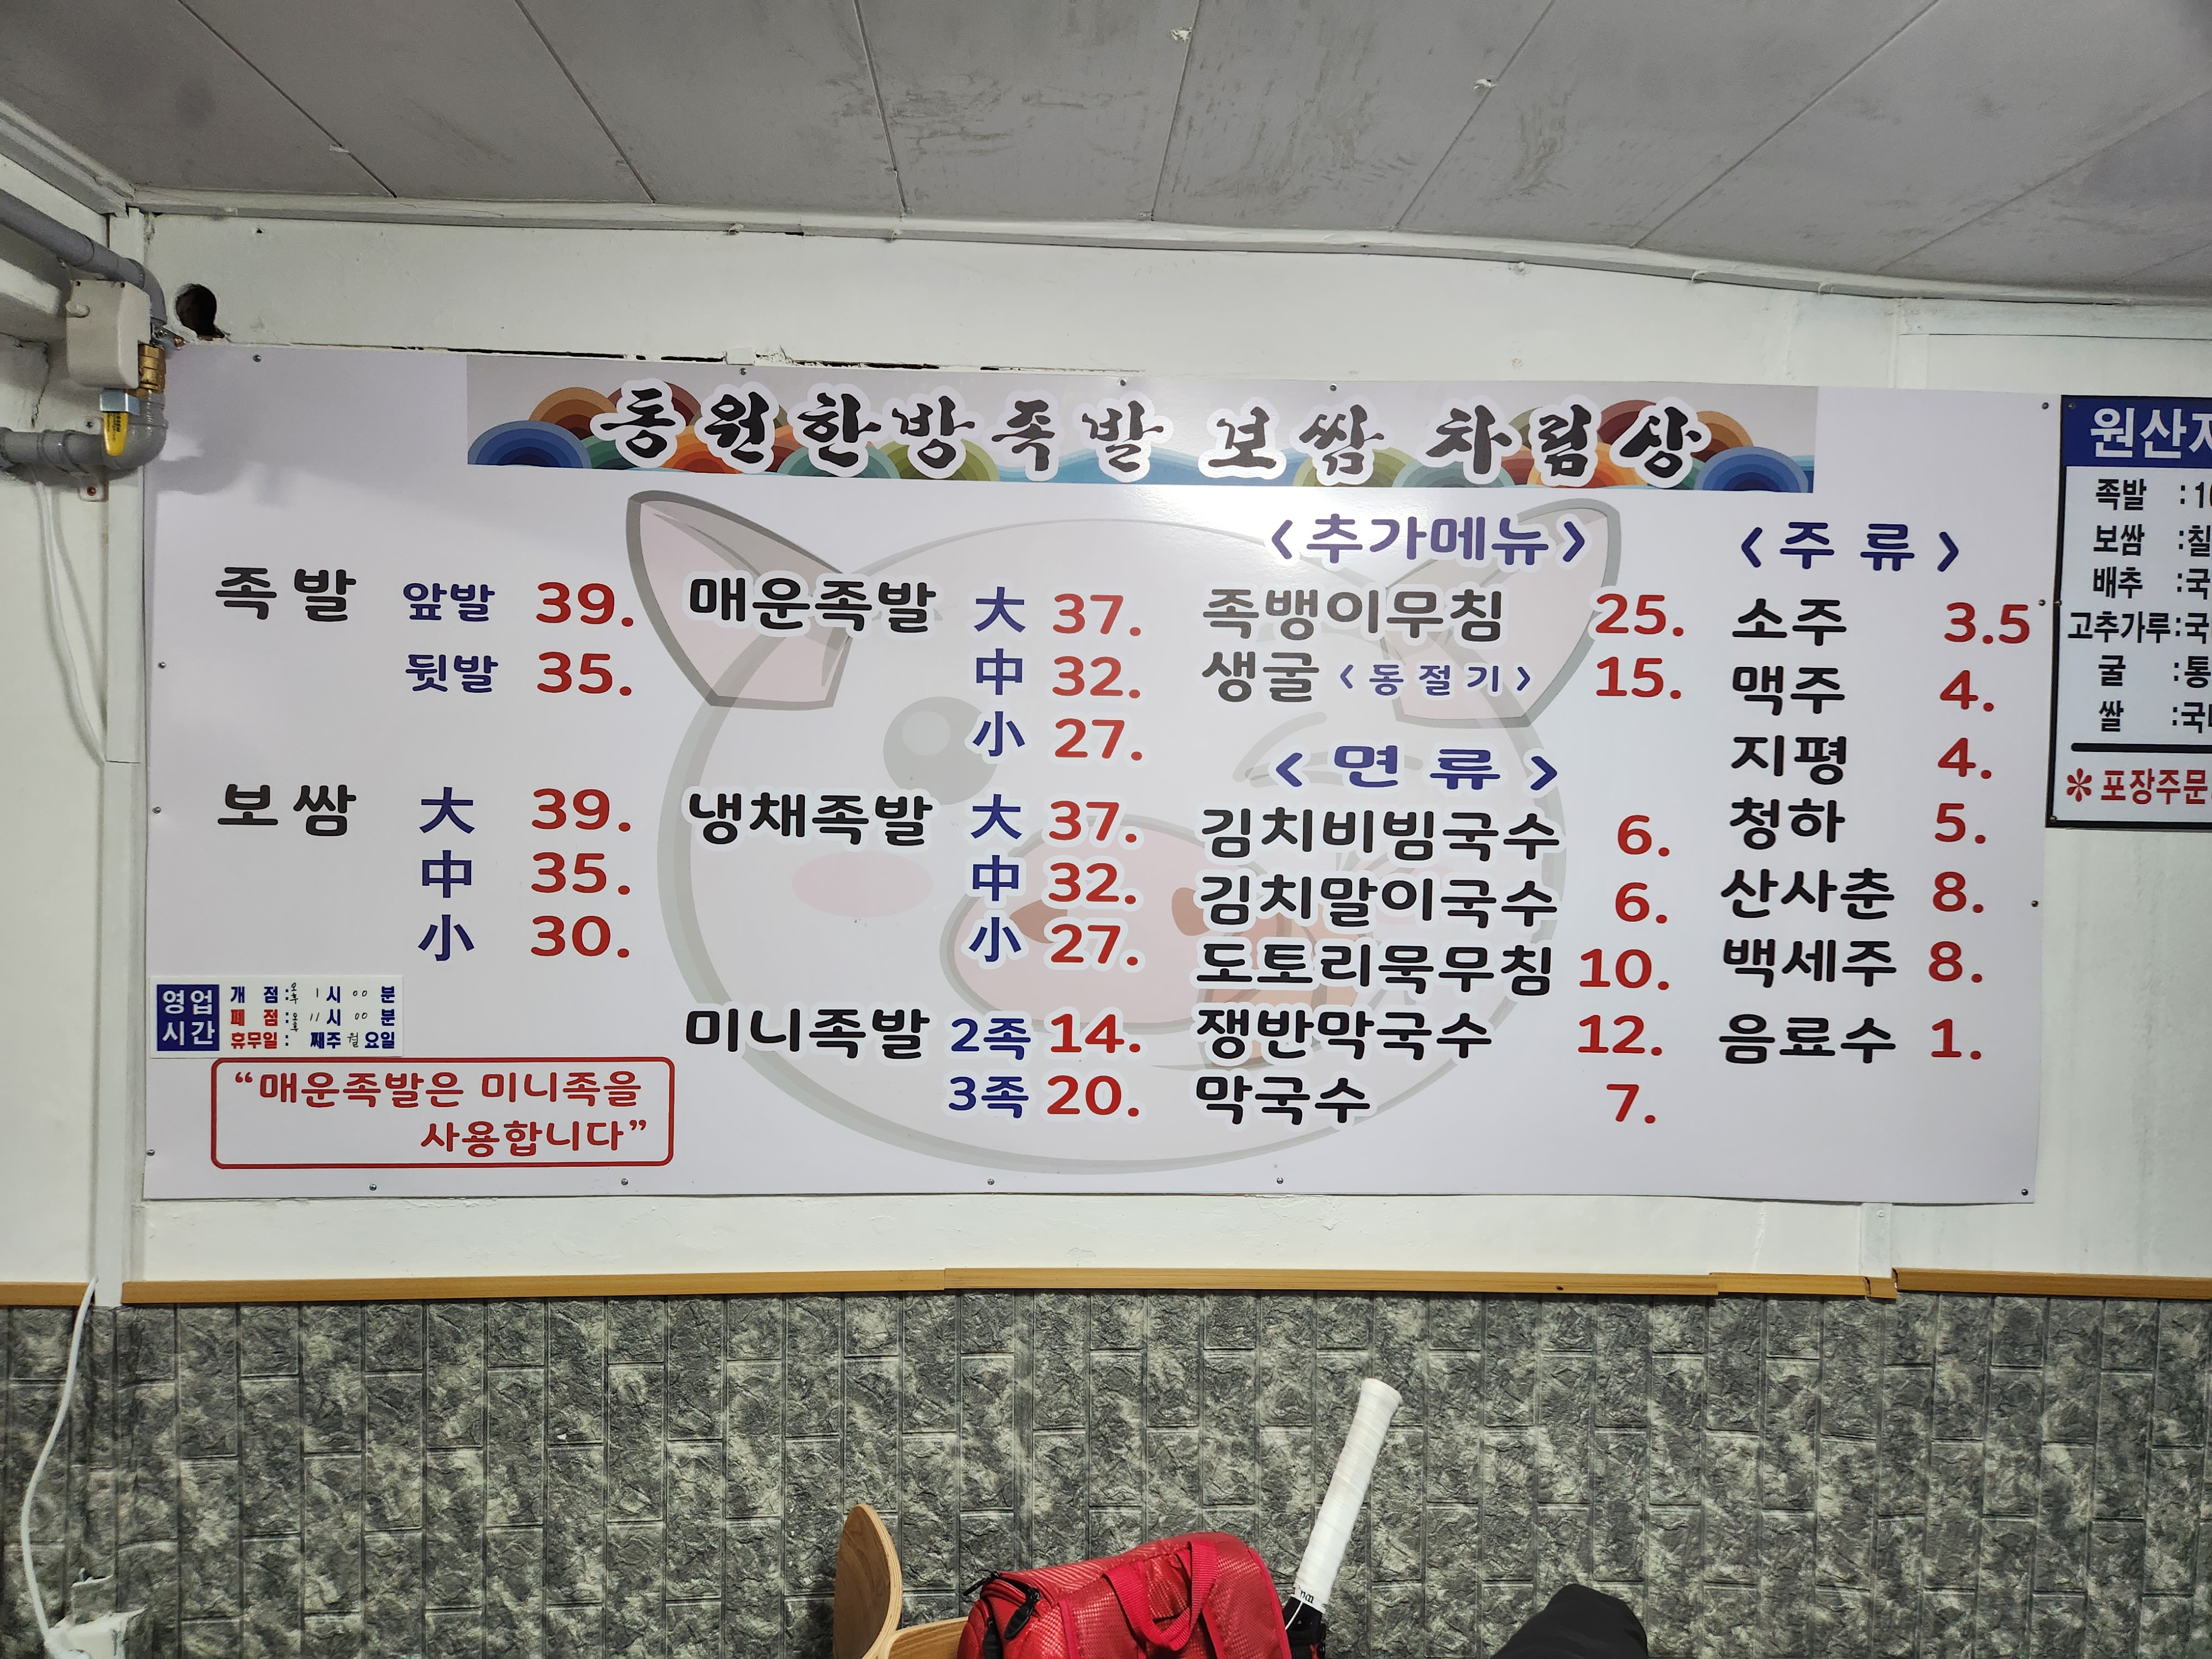 동원한방족발 보쌈 차림상
족발 앞발 39.
뒷발 35.
보쌈 大 39.
中 35.
小 30.
매운족발 大 37.
中 32.
小 27.
냉채족발 大 37.
中 32.
小 27.
미니족발 2족 14.
3족 20.
<추가메뉴>
족뱅이무침 25.
생굴 <동절기> 15.
<면류>
김치비빔국수 6.
김치말이국수 6.
도토리묵무침 10.
쟁반막국수 12.
막국수 7.
<주류>
소주 3.5
맥주 4.
지평 4.
청하 5.
산사춘 8.
백세주 8.
음료수 1.
영업
시간
개 점: 오후 1시 00분
폐 점: 오후 11시 00분
휴무일: 째주 월요일
"매운족발은 미니족을
사용합니다"
원산지
족발 :
보쌈 :칠
배추 :국
고추가루:국
굴 :통
쌀 :국
※포장주문